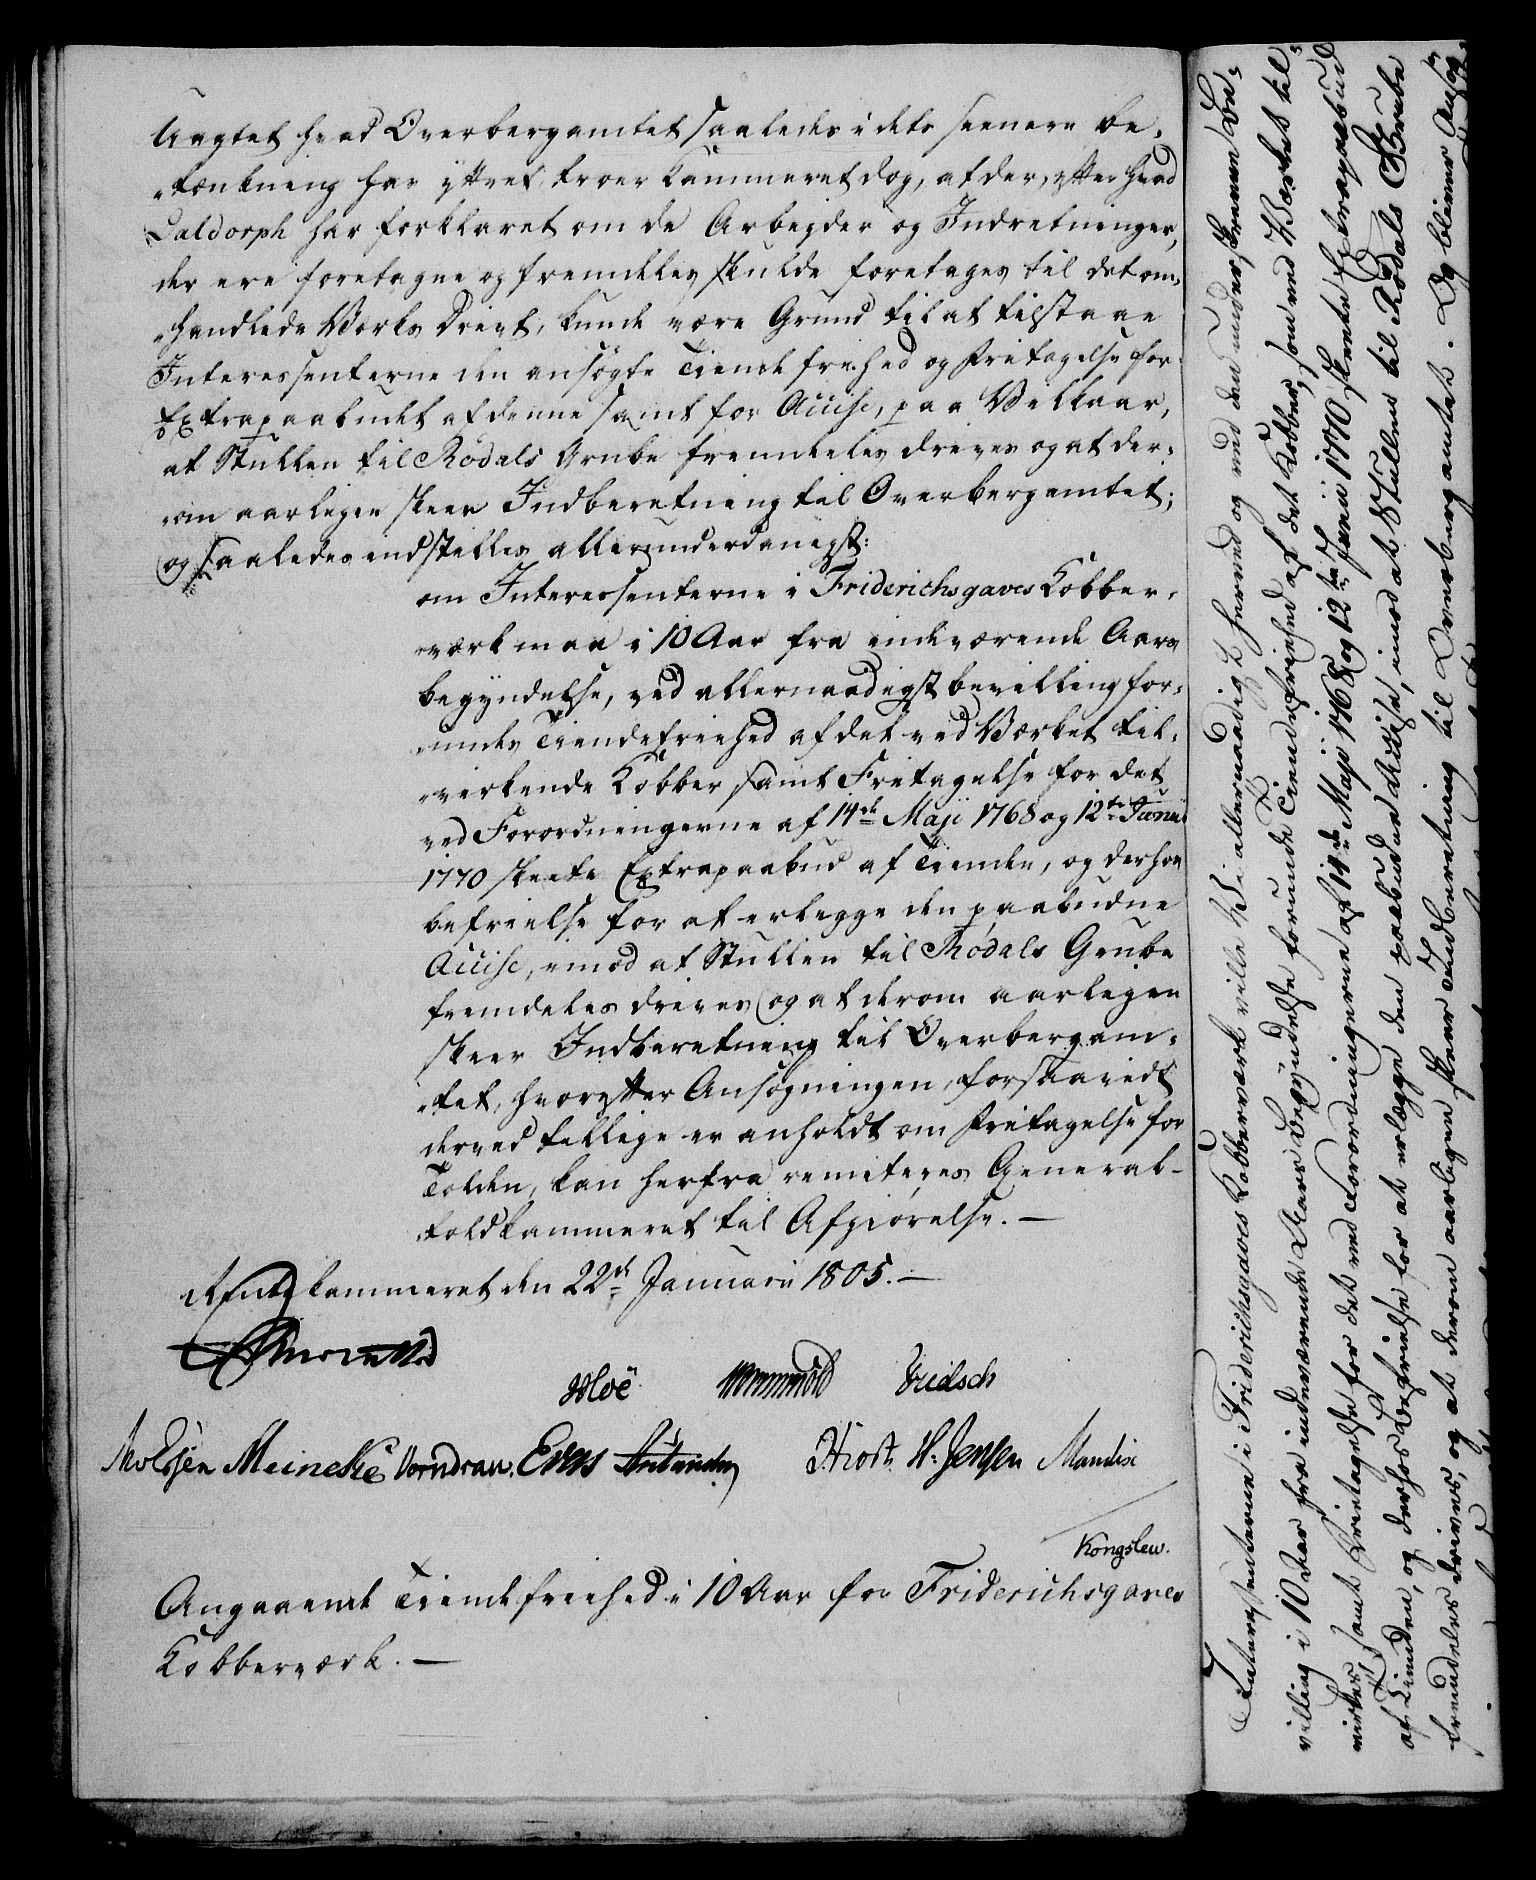 Uagtet hvad Overbergamtet saaledes i dets seenere be-
tænkning har yttret, troer Kammeret dog, at der, efter hvad
Daldorph har forklaret om de Arbeyder og Indretninger,
der ere foretagne og fremdeles skulde foretages til det om-
handlede Værks Drivt, kunde være Grund til at tilstaae
Interessenterne den ansøgte Tiende frihed og Fritagelse for
Extrapaabudet af denne samt for Accise, paa Velkaar,
at Stullen til Rødals Grube fremdeles drives og at der-
om aarligen skeer Indberetning til Overbergamtet;
og saaledes indstilles allerunderdanigst:
om Interessenterne i Friderichsgaves Kobber-
værk maa i 10 Aar fra indeværende Aars
begyndelse, ved allernaadigst bevilling for-
undes Tiendefriehed af det ved Værket til-
virkende Kobber samt Fritagelse for det
ved Forordningerne af 14de Maji 1768 og 12te Junii
1770 skeete Extrapaabud af Tienden, og derhos
befrielse for at erlegge den paabudne
Accise, imod at Stullen til Rødals Grube
fremdeles drives og at derom aarligen
skeer Indberetning til Overbergam-
tet, hvorefter Ansøgningen, forsaavidt
derved tillige er anholdt om Fritagelse for
Tolden, kan herfra remiteres General-
toldkammeret til Afgiørelse. —
Rentekammeret den 22de Januarii 1805. —
Hoë Wormskiold Fridsch
Meincke Vorndran. Evers Hiort. H. Jensen Mandix
Kongslew.
Angaaende Tiendefriehed i 10 Aar for Friderichsgaves
Kobberværk. —
Interessenterne i Friderichsgaves Kobberværk ville Vi allernaadigst hermed og ved den under skreven Be-
villing i 10 Aar fra indeværende Aars Begyndelse forunde Tiendefriehed af det Kobber, som ved Værket til-
virkes, samt Fritagelse for det ved Forordningerne af 14de Maji 1768 og 12te Junii 1770 skeete Extrapaabud
af Tienden, og derhos Befrielse for at erlægge den paabudne Accise, imod at Stullen til Rødals Grube
fremdeles drives, og at derom aarligen skeer Indberetning til Overbergamtet. Og bliver Ansøg-